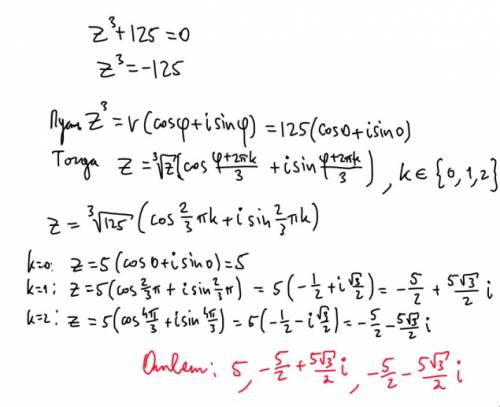 z³+125=0
z³=-125
Пусть z³=r(cosφ+i sinφ)=125(cos0+i sin0)
Тогда z=∛z(cos (φ+2πk)/3 + i sin (φ+2πk)/3), k∈{0,1,2}
z=∛125(cos 2/3 πk+i sin 2/3 πk)
k=0: z=5(cos0+i sin0)=5
k=1: z=5(cos 2/3 π+i sin 2/3 π) = 5(-1/2+i √3/2)= -5/2 + 5√3/2 i
k=2: z=5(cos 4π/3+i sin 4π/3)=5(-1/2-i √3/2)=-5/2-5√3/2 i
Ответ: 5, -5/2+5√3/2 i, -5/2-5√3/2 i